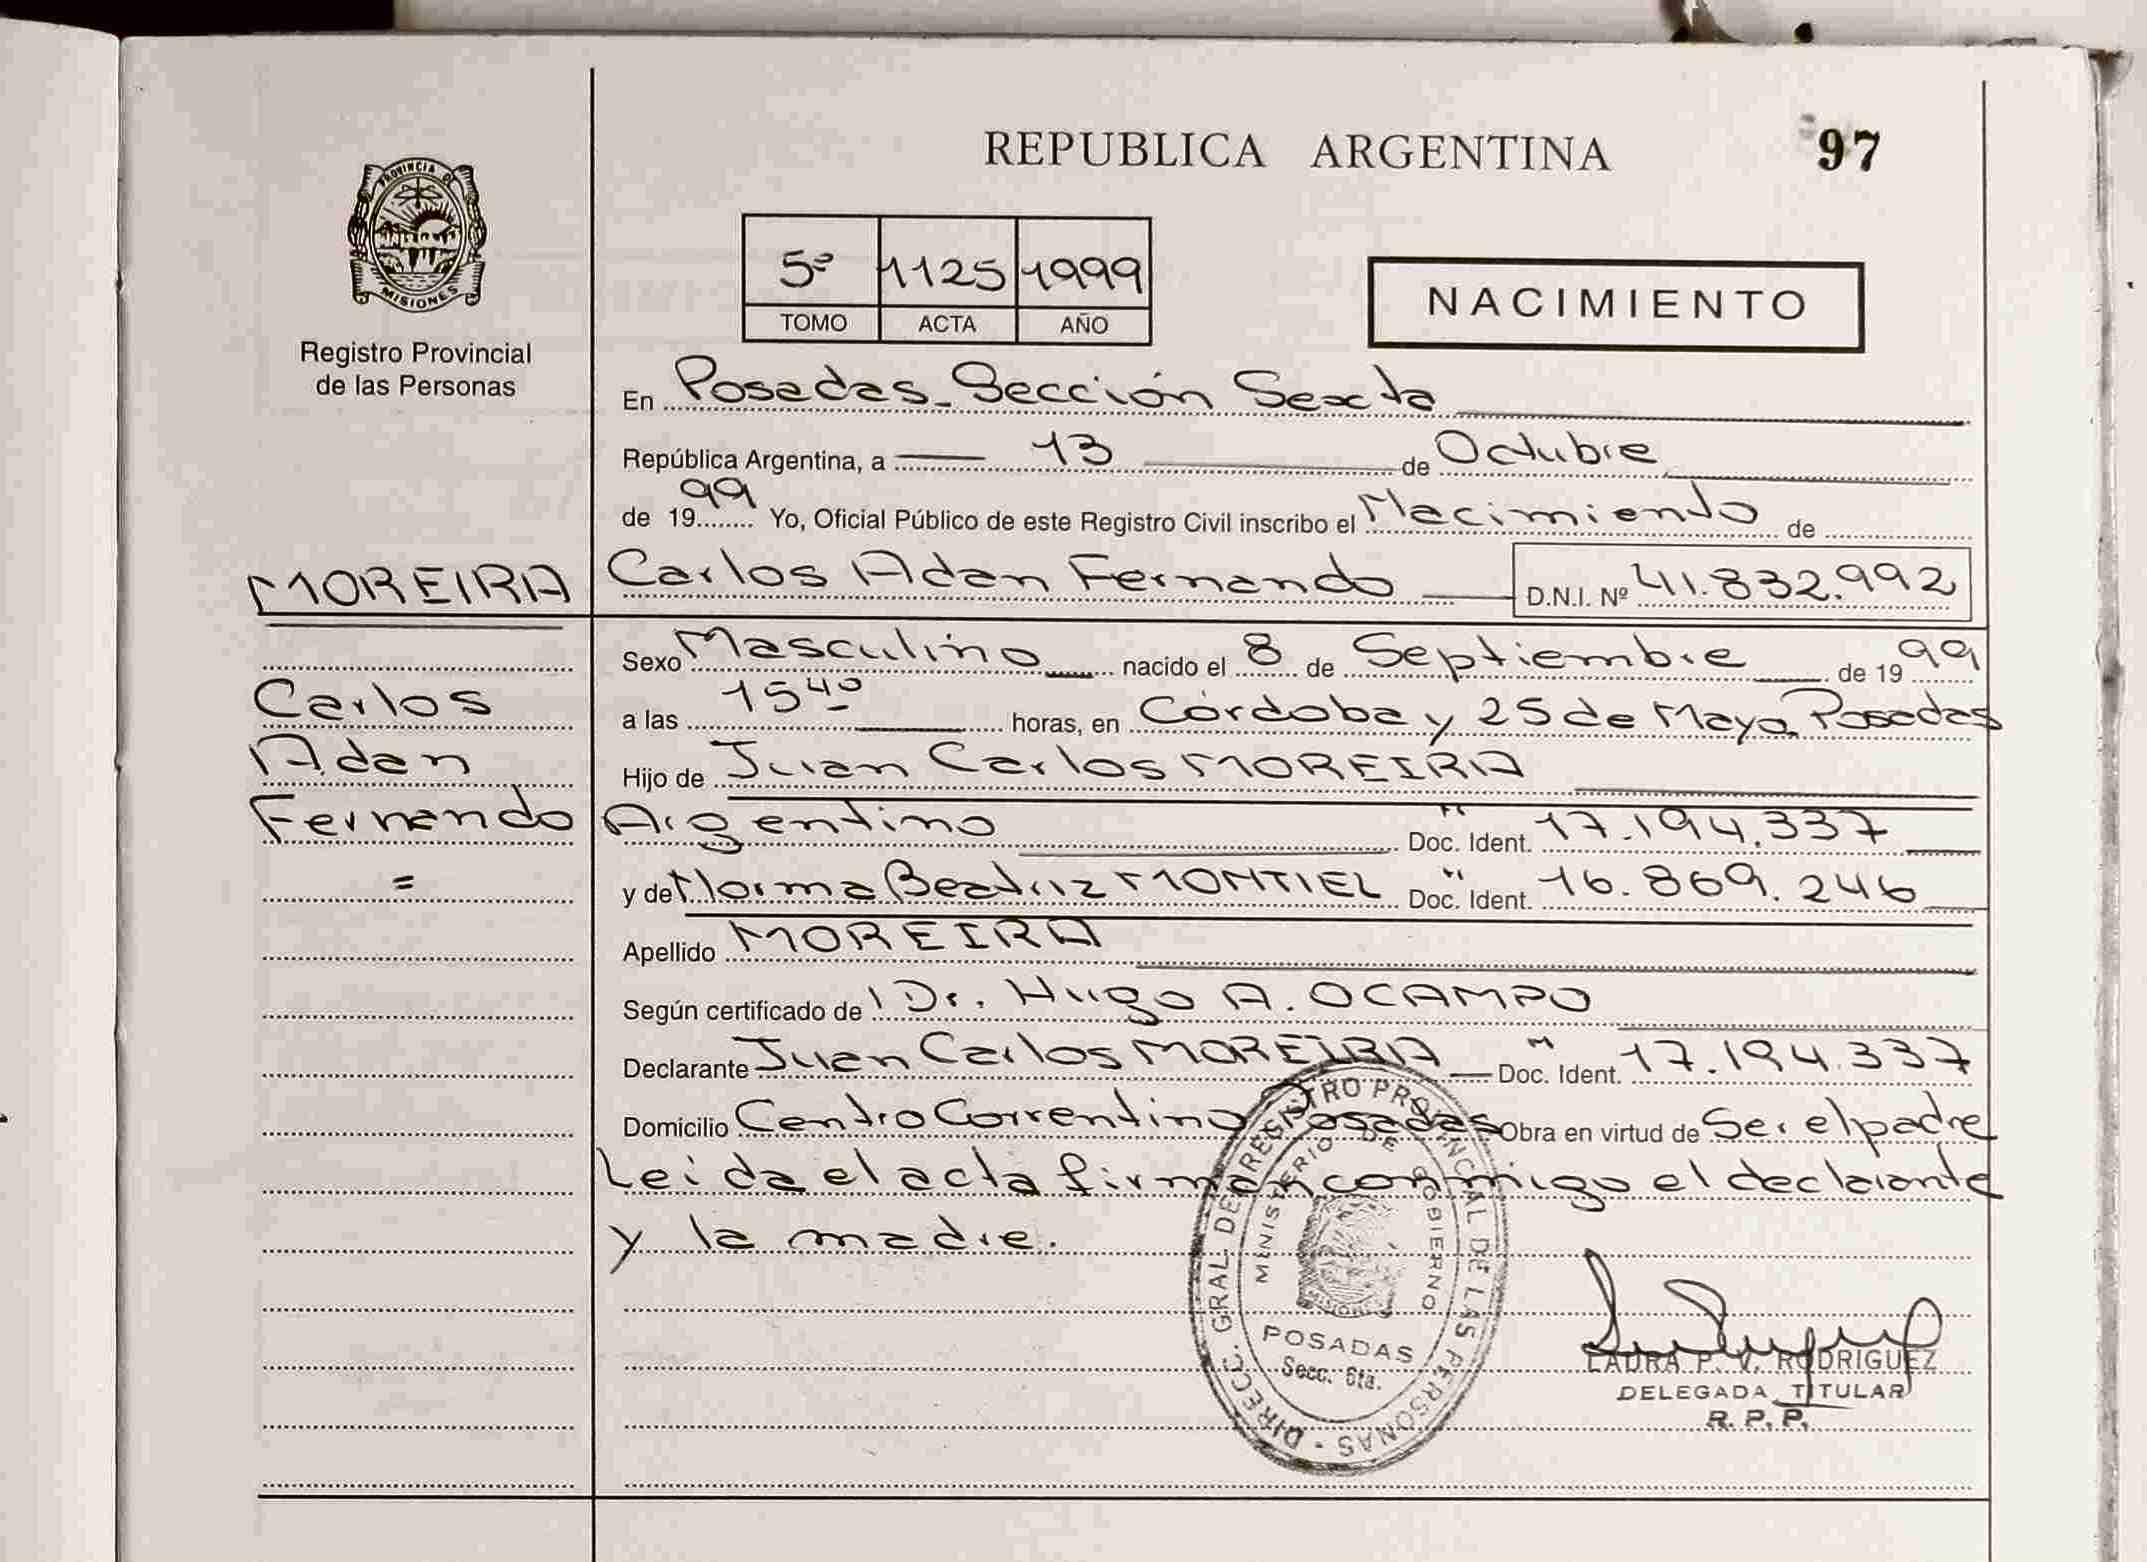 REPUBLICA ARGENTINA
97
PROVINCIA DE
MISIONES
Registro Provincial
de las Personas
5º 1125 1999
TOMO ACTA AÑO
NACIMIENTO
En Posadas-Sección Sexta
República Argentina, a 13 de Octubre
de 1999 Yo, Oficial Público de este Registro Civil inscribo el Nacimiento de
MOREIRA Carlos Adan Fernando D.N.I. Nº 41.832.992
Sexo Masculino nacido el 8 de Septiembre de 1999
Carlos
a las 15⁴⁰ horas, en Córdoba y 25 de Mayo Posadas
Adan
Hijo de Juan Carlos MOREIRA
Fernando
Argentino Doc. Ident. " 17.194.337
=
y de Norma Beatriz MONTIEL Doc. Ident. " 16.869.246
Apellido MOREIRA
Según certificado de Dr. Hugo A. OCAMPO
Declarante Juan Carlos MOREIRA Doc. Ident. " 17.194.337
Domicilio Centro Correntino Posadas Obra en virtud de Ser el padre
Leida el acta firman conmigo el declarante
y la madre.
DIRECC. GRAL. DEL REGISTRO PROVINCIAL DE LAS PERSONAS -
MINISTERIO DE GOBIERNO
MISIONES
POSADAS
Secc. 6ta.
LAURA P. V. RODRIGUEZ
DELEGADA TITULAR
R. P. P.